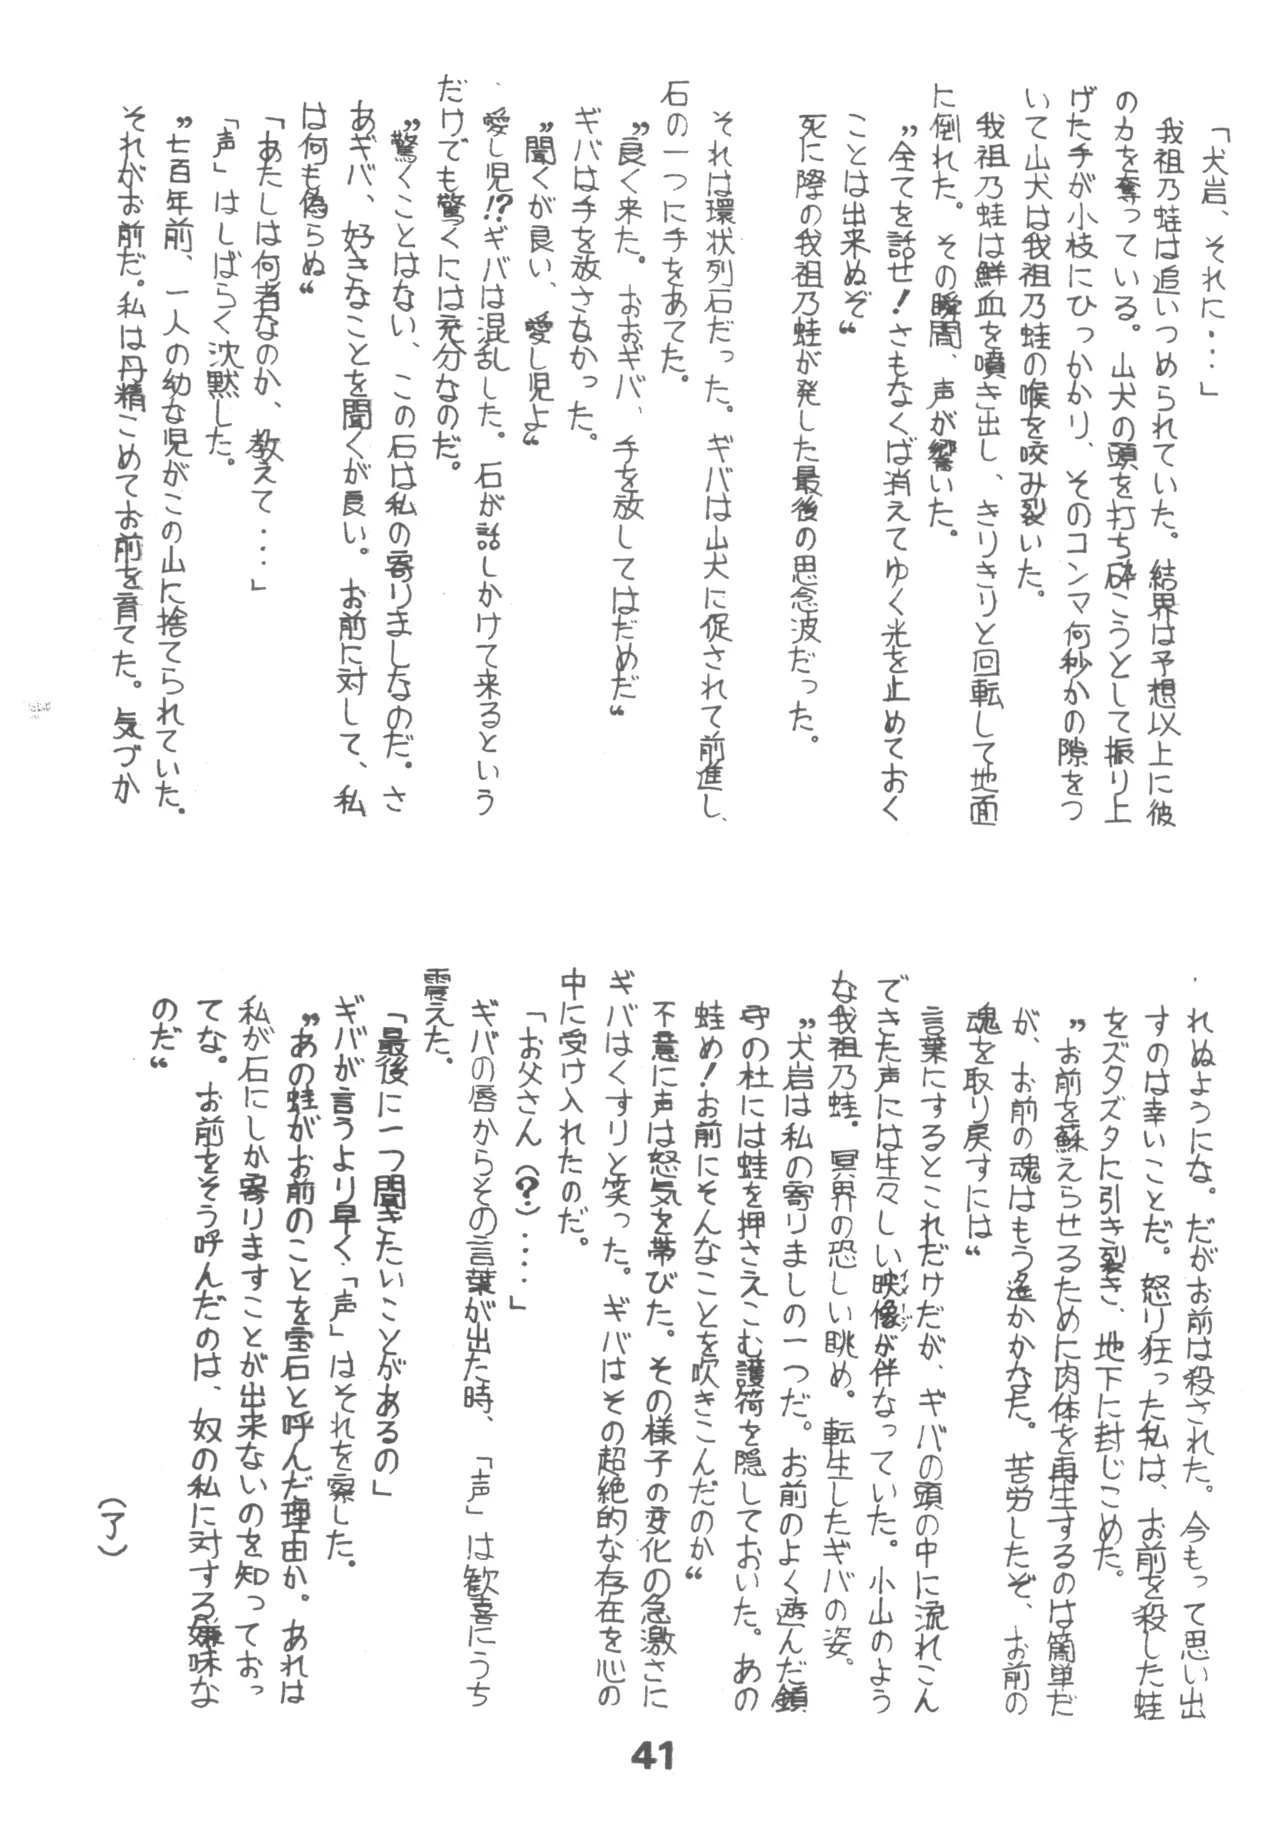 「犬岩、それに・・・」
我祖乃蛙は追いつめられていた。結界は予想以上に彼
の力を奪っている。山犬の頭を打ち砕こうとして振り上
げた手が小枝にひっかかり、そのコンマ何秒かの隙をつ
いて山犬は我祖乃蛙の喉を咬み裂いた。
我祖乃蛙は鮮血を噴き出し、きりきりと回転して地面
に倒れた。その瞬間、声が響いた。
〝全てを話せ！さもなくば消えてゆく光を止めておく
ことは出来ぬぞ〟
死に際の我祖乃蛙が発した最後の思念波だった。
それは環状列石だった。ギバは山犬に促されて前進し、
石の一つに手をあてた。
〝良く来た。おおギバ、手を放してはだめだ〟
ギバは手を放さなかった。
〝聞くが良い、愛し児よ〟
愛し児!?ギバは混乱した。石が話しかけて来るという
だけでも驚くには充分なのだ。
〝驚くことはない、この石は私の寄りましなのだ。さ
あギバ、好きなことを聞くが良い。お前に対して、私
は何も偽らぬ〟
「あたしは何者なのか、教えて・・・・」
「声」はしばらく沈黙した。
〝七百年前、一人の幼な児がこの山に捨てられていた。
それがお前だ。私は丹精こめてお前を育てた。気づか
れぬようにな。だがお前は殺された。今もって思い出
すのは辛いことだ。怒り狂った私は、お前を殺した蛙
をズタズタに引き裂き、地下に封じこめた。
〝お前を蘇えらせるために肉体を再生するのは簡単だ
が、お前の魂はもう遙かかなた。苦労したぞ、お前の
魂を取り戻すには〟
言葉にするとこれだけだが、ギバの頭の中に流れこん
できた声には生々しい映像イメージが伴なっていた。小山のよう
な我祖乃蛙。冥界の恐しい眺め。転生したギバの姿。
〝犬岩は私の寄りましの一つだ。お前のよく遊んだ鎮
守の杜には蛙を押さえこむ護符を隠しておいた。あの
蛙め！お前にそんなことを吹きこんだのか〟
不意に声は怒気を帯びた。その様子の変化の急激さに
ギバはくすりと笑った。ギバはその超絶的な存在を心の
中に受け入れたのだ。
「お父さん（？）・・・・」
ギバの唇からその言葉が出た時、「声」は歓喜にうち
震えた。
「最後に一つ聞きたいことがあるの」
ギバが言うより早く「声」はそれを察した。
〝あの蛙がお前のことを宝石と呼んだ理由か。あれは
私が石にしか寄りますことが出来ないのを知っておっ
てな。お前をそう呼んだのは、奴の私に対する嫌味な
のだ〟
（了）
41